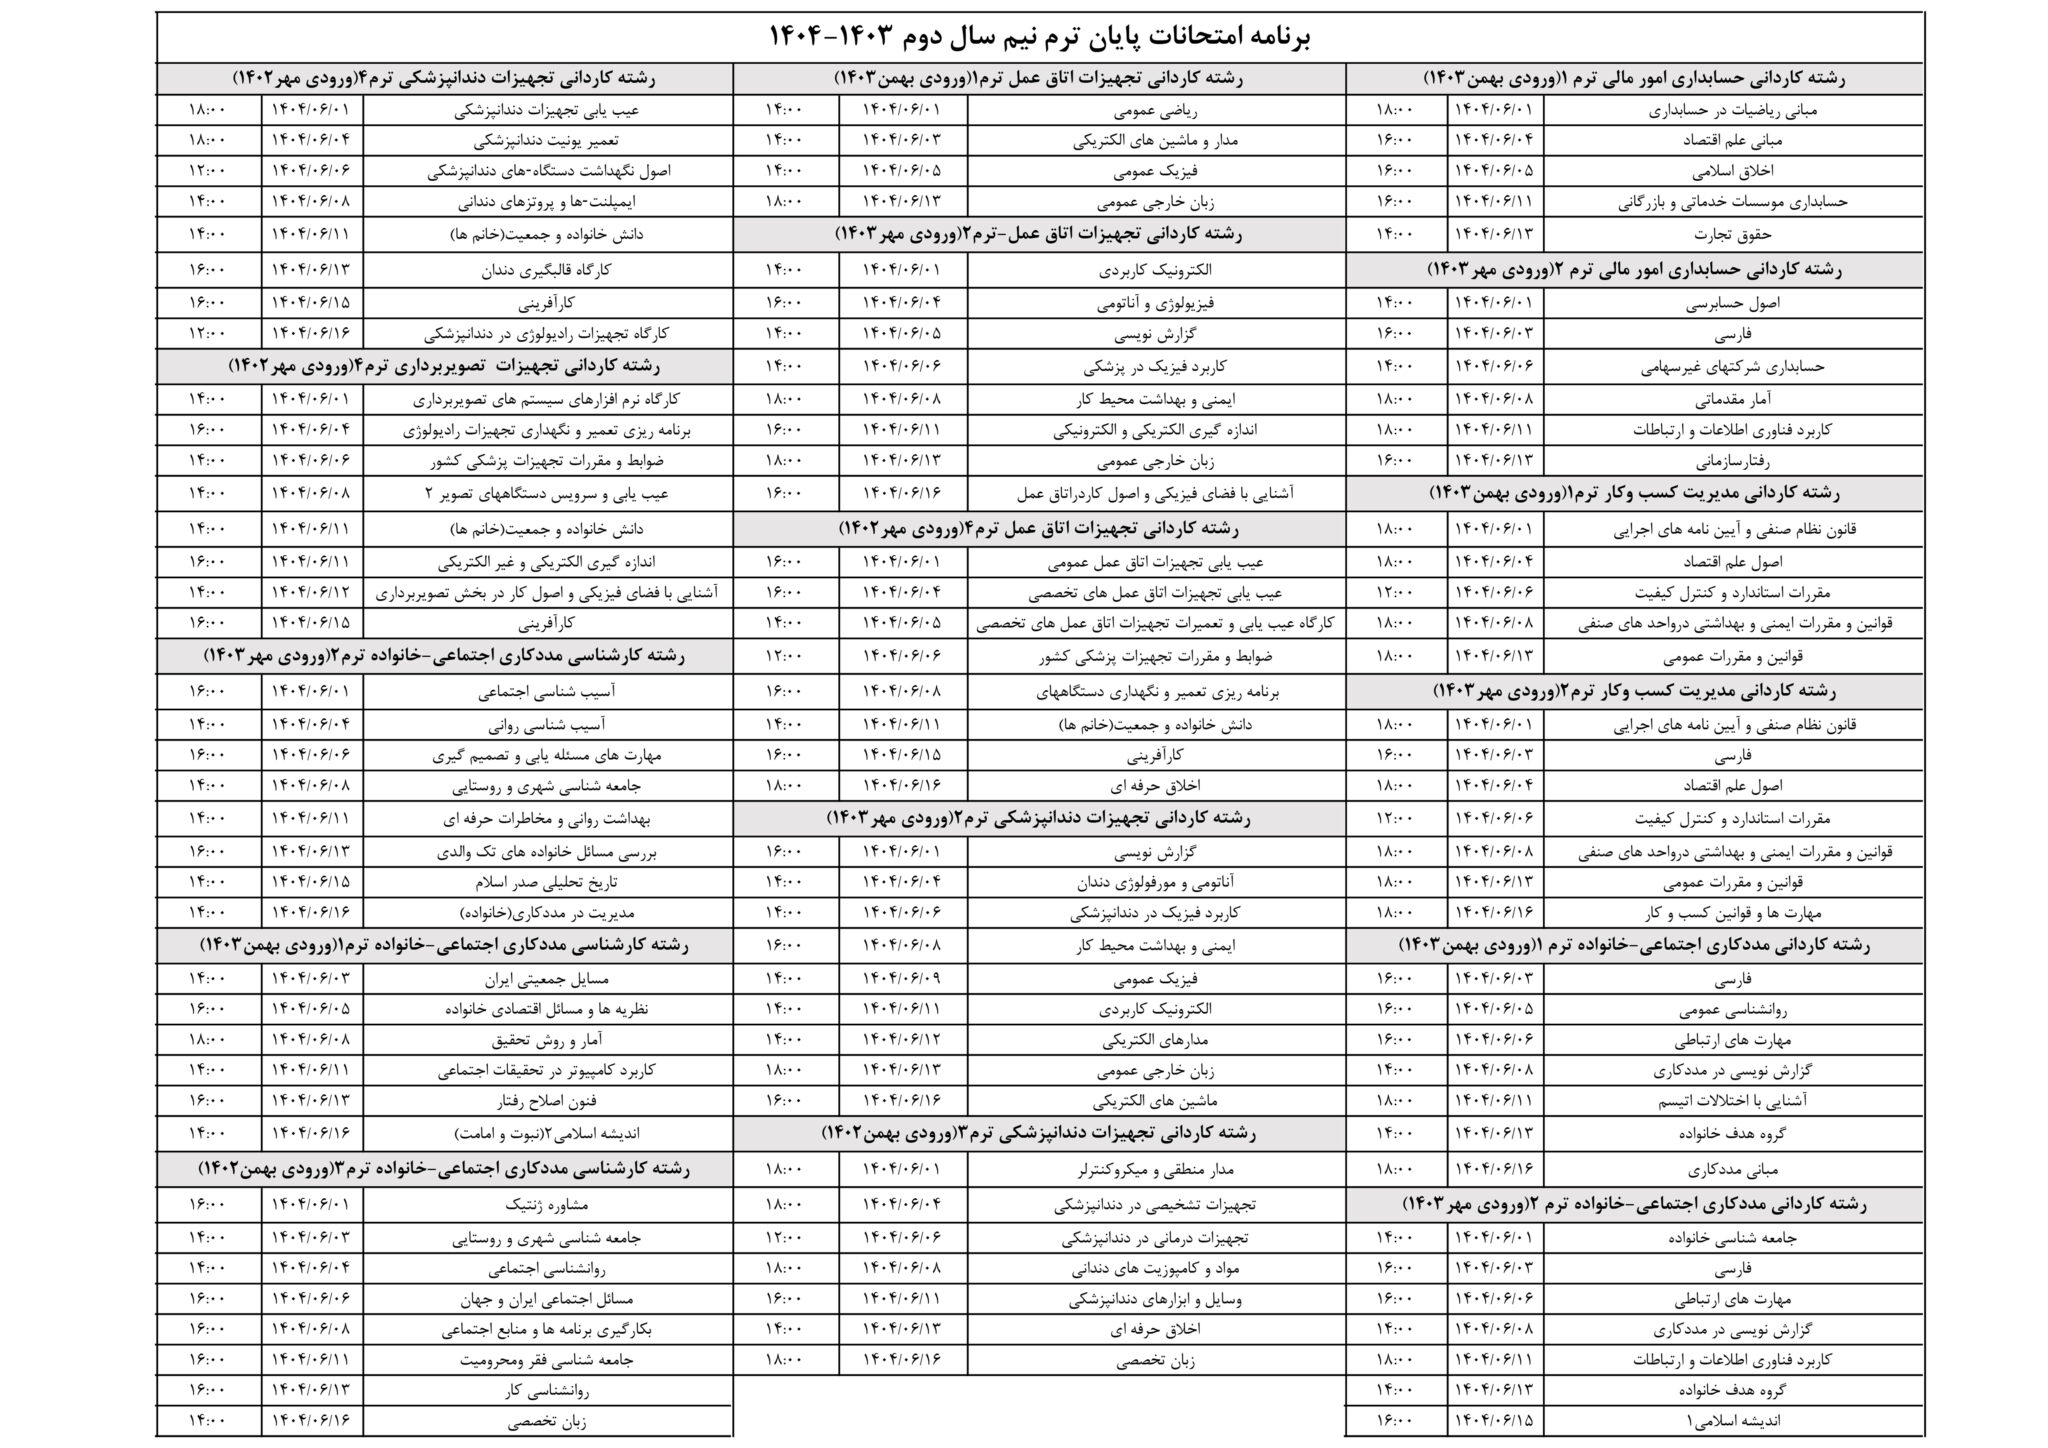 برنامه امتحانات پایان ترم نیم سال دوم ۱۴۰۳-۱۴۰۴
رشته کاردانی حسابداری امور مالی ترم ۱(ورودی بهمن۱۴۰۳)
مبانی ریاضیات در حسابداری ۱۴۰۴/۰۶/۰۱ ۱۸:۰۰
مبانی علم اقتصاد ۱۴۰۴/۰۶/۰۴ ۱۶:۰۰
اخلاق اسلامی ۱۴۰۴/۰۶/۰۵ ۱۶:۰۰
حسابداری موسسات خدماتی و بازرگانی ۱۴۰۴/۰۶/۱۱ ۱۶:۰۰
حقوق تجارت ۱۴۰۴/۰۶/۱۳ ۱۴:۰۰
رشته کاردانی حسابداری امور مالی ترم ۲(ورودی مهر۱۴۰۳)
اصول حسابرسی ۱۴۰۴/۰۶/۰۱ ۱۴:۰۰
فارسی ۱۴۰۴/۰۶/۰۳ ۱۶:۰۰
حسابداری شرکتهای غیرسهامی ۱۴۰۴/۰۶/۰۶ ۱۴:۰۰
آمار مقدماتی ۱۴۰۴/۰۶/۰۸ ۱۸:۰۰
کاربرد فناوری اطلاعات و ارتباطات ۱۴۰۴/۰۶/۱۱ ۱۸:۰۰
رفتارسازمانی ۱۴۰۴/۰۶/۱۳ ۱۶:۰۰
رشته کاردانی مدیریت کسب وکار ترم۱(ورودی بهمن۱۴۰۳)
قانون نظام صنفی و آیین نامه های اجرایی ۱۴۰۴/۰۶/۰۱ ۱۸:۰۰
اصول علم اقتصاد ۱۴۰۴/۰۶/۰۴ ۱۸:۰۰
مقررات استاندارد و کنترل کیفیت ۱۴۰۴/۰۶/۰۶ ۱۲:۰۰
قوانین و مقررات ایمنی و بهداشتی درواحد های صنفی ۱۴۰۴/۰۶/۰۸ ۱۸:۰۰
قوانین و مقررات عمومی ۱۴۰۴/۰۶/۱۳ ۱۸:۰۰
رشته کاردانی مدیریت کسب وکار ترم۲(ورودی مهر۱۴۰۳)
قانون نظام صنفی و آیین نامه های اجرایی ۱۴۰۴/۰۶/۰۱ ۱۸:۰۰
فارسی ۱۴۰۴/۰۶/۰۳ ۱۶:۰۰
اصول علم اقتصاد ۱۴۰۴/۰۶/۰۴ ۱۸:۰۰
مقررات استاندارد و کنترل کیفیت ۱۴۰۴/۰۶/۰۶ ۱۲:۰۰
قوانین و مقررات ایمنی و بهداشتی درواحد های صنفی ۱۴۰۴/۰۶/۰۸ ۱۸:۰۰
قوانین و مقررات عمومی ۱۴۰۴/۰۶/۱۳ ۱۸:۰۰
مهارت ها و قوانین کسب و کار ۱۴۰۴/۰۶/۱۶ ۱۸:۰۰
رشته کاردانی مددکاری اجتماعی-خانواده ترم ۱(ورودی بهمن۱۴۰۳)
فارسی ۱۴۰۴/۰۶/۰۳ ۱۶:۰۰
روانشناسی عمومی ۱۴۰۴/۰۶/۰۵ ۱۶:۰۰
مهارت های ارتباطی ۱۴۰۴/۰۶/۰۶ ۱۶:۰۰
گزارش نویسی در مددکاری ۱۴۰۴/۰۶/۰۸ ۱۴:۰۰
آشنایی با اختلالات اتیسم ۱۴۰۴/۰۶/۱۱ ۱۸:۰۰
گروه هدف خانواده ۱۴۰۴/۰۶/۱۳ ۱۴:۰۰
مبانی مددکاری ۱۴۰۴/۰۶/۱۶ ۱۸:۰۰
رشته کاردانی مددکاری اجتماعی-خانواده ترم ۲(ورودی مهر۱۴۰۳)
جامعه شناسی خانواده ۱۴۰۴/۰۶/۰۱ ۱۴:۰۰
فارسی ۱۴۰۴/۰۶/۰۳ ۱۶:۰۰
مهارت های ارتباطی ۱۴۰۴/۰۶/۰۶ ۱۶:۰۰
گزارش نویسی در مددکاری ۱۴۰۴/۰۶/۰۸ ۱۴:۰۰
کاربرد فناوری اطلاعات و ارتباطات ۱۴۰۴/۰۶/۱۱ ۱۸:۰۰
گروه هدف خانواده ۱۴۰۴/۰۶/۱۳ ۱۴:۰۰
اندیشه اسلامی۱ ۱۴۰۴/۰۶/۱۵ ۱۶:۰۰
رشته کاردانی تجهیزات اتاق عمل ترم۱(ورودی بهمن۱۴۰۳)
ریاضی عمومی ۱۴۰۴/۰۶/۰۱ ۱۴:۰۰
مدار و ماشین های الکتریکی ۱۴۰۴/۰۶/۰۳ ۱۴:۰۰
فیزیک عمومی ۱۴۰۴/۰۶/۰۵ ۱۴:۰۰
زبان خارجی عمومی ۱۴۰۴/۰۶/۱۳ ۱۸:۰۰
رشته کاردانی تجهیزات اتاق عمل-ترم۲(ورودی مهر۱۴۰۳)
الکترونیک کاربردی ۱۴۰۴/۰۶/۰۱ ۱۴:۰۰
فیزیولوژی و آناتومی ۱۴۰۴/۰۶/۰۴ ۱۶:۰۰
گزارش نویسی ۱۴۰۴/۰۶/۰۵ ۱۴:۰۰
کاربرد فیزیک در پزشکی ۱۴۰۴/۰۶/۰۶ ۱۴:۰۰
ایمنی و بهداشت محیط کار ۱۴۰۴/۰۶/۰۸ ۱۸:۰۰
اندازه گیری الکتریکی و الکترونیکی ۱۴۰۴/۰۶/۱۱ ۱۶:۰۰
زبان خارجی عمومی ۱۴۰۴/۰۶/۱۳ ۱۸:۰۰
آشنایی با فضای فیزیکی و اصول کاردراتاق عمل ۱۴۰۴/۰۶/۱۶ ۱۶:۰۰
رشته کاردانی تجهیزات اتاق عمل ترم۴(ورودی مهر۱۴۰۲)
عیب یابی تجهیزات اتاق عمل عمومی ۱۴۰۴/۰۶/۰۱ ۱۶:۰۰
عیب یابی تجهیزات اتاق عمل های تخصصی ۱۴۰۴/۰۶/۰۴ ۱۶:۰۰
کارگاه عیب یابی و تعمیرات تجهیزات اتاق عمل های تخصصی ۱۴۰۴/۰۶/۰۵ ۱۴:۰۰
ضوابط و مقررات تجهیزات پزشکی کشور ۱۴۰۴/۰۶/۰۶ ۱۲:۰۰
برنامه ریزی تعمیر و نگهداری دستگاههای ۱۴۰۴/۰۶/۰۸ ۱۶:۰۰
دانش خانواده و جمعیت(خانم ها) ۱۴۰۴/۰۶/۱۱ ۱۴:۰۰
کارآفرینی ۱۴۰۴/۰۶/۱۵ ۱۶:۰۰
اخلاق حرفه ای ۱۴۰۴/۰۶/۱۶ ۱۸:۰۰
رشته کاردانی تجهیزات دندانپزشکی ترم۲(ورودی مهر۱۴۰۳)
گزارش نویسی ۱۴۰۴/۰۶/۰۱ ۱۶:۰۰
آناتومی و مورفولوژی دندان ۱۴۰۴/۰۶/۰۴ ۱۴:۰۰
کاربرد فیزیک در دندانپزشکی ۱۴۰۴/۰۶/۰۶ ۱۴:۰۰
ایمنی و بهداشت محیط کار ۱۴۰۴/۰۶/۰۸ ۱۶:۰۰
فیزیک عمومی ۱۴۰۴/۰۶/۰۹ ۱۴:۰۰
الکترونیک کاربردی ۱۴۰۴/۰۶/۱۱ ۱۴:۰۰
مدارهای الکتریکی ۱۴۰۴/۰۶/۱۲ ۱۴:۰۰
زبان خارجی عمومی ۱۴۰۴/۰۶/۱۳ ۱۸:۰۰
ماشین های الکتریکی ۱۴۰۴/۰۶/۱۶ ۱۶:۰۰
رشته کاردانی تجهیزات دندانپزشکی ترم۳(ورودی بهمن۱۴۰۲)
مدار منطقی و میکروکنترلر ۱۴۰۴/۰۶/۰۱ ۱۸:۰۰
تجهیزات تشخیصی در دندانپزشکی ۱۴۰۴/۰۶/۰۴ ۱۸:۰۰
تجهیزات درمانی در دندانپزشکی ۱۴۰۴/۰۶/۰۶ ۱۲:۰۰
مواد و کامپوزیت های دندانی ۱۴۰۴/۰۶/۰۸ ۱۸:۰۰
وسایل و ابزارهای دندانپزشکی ۱۴۰۴/۰۶/۱۱ ۱۶:۰۰
اخلاق حرفه ای ۱۴۰۴/۰۶/۱۳ ۱۴:۰۰
زبان تخصصی ۱۴۰۴/۰۶/۱۶ ۱۸:۰۰
رشته کاردانی تجهیزات دندانپزشکی ترم۴(ورودی مهر۱۴۰۲)
عیب یابی تجهیزات دندانپزشکی ۱۴۰۴/۰۶/۰۱ ۱۸:۰۰
تعمیر یونیت دندانپزشکی ۱۴۰۴/۰۶/۰۴ ۱۸:۰۰
اصول نگهداشت دستگاه-های دندانپزشکی ۱۴۰۴/۰۶/۰۶ ۱۲:۰۰
ایمپلنت-ها و پروتزهای دندانی ۱۴۰۴/۰۶/۰۸ ۱۴:۰۰
دانش خانواده و جمعیت(خانم ها) ۱۴۰۴/۰۶/۱۱ ۱۴:۰۰
کارگاه قالبگیری دندان ۱۴۰۴/۰۶/۱۳ ۱۶:۰۰
کارآفرینی ۱۴۰۴/۰۶/۱۵ ۱۶:۰۰
کارگاه تجهیزات رادیولوژی در دندانپزشکی ۱۴۰۴/۰۶/۱۶ ۱۲:۰۰
رشته کاردانی تجهیزات تصویربرداری ترم۴(ورودی مهر۱۴۰۲)
کارگاه نرم افزارهای سیستم های تصویربرداری ۱۴۰۴/۰۶/۰۱ ۱۴:۰۰
برنامه ریزی تعمیر و نگهداری تجهیزات رادیولوژی ۱۴۰۴/۰۶/۰۴ ۱۶:۰۰
ضوابط و مقررات تجهیزات پزشکی کشور ۱۴۰۴/۰۶/۰۶ ۱۴:۰۰
عیب یابی و سرویس دستگاههای تصویر ۲ ۱۴۰۴/۰۶/۰۸ ۱۴:۰۰
دانش خانواده و جمعیت(خانم ها) ۱۴۰۴/۰۶/۱۱ ۱۴:۰۰
اندازه گیری الکتریکی و غیر الکتریکی ۱۴۰۴/۰۶/۱۱ ۱۶:۰۰
آشنایی با فضای فیزیکی و اصول کار در بخش تصویربرداری ۱۴۰۴/۰۶/۱۲ ۱۴:۰۰
کارآفرینی ۱۴۰۴/۰۶/۱۵ ۱۶:۰۰
رشته کارشناسی مددکاری اجتماعی-خانواده ترم۲(ورودی مهر۱۴۰۳)
آسیب شناسی اجتماعی ۱۴۰۴/۰۶/۰۱ ۱۶:۰۰
آسیب شناسی روانی ۱۴۰۴/۰۶/۰۴ ۱۴:۰۰
مهارت های مسئله یابی و تصمیم گیری ۱۴۰۴/۰۶/۰۶ ۱۶:۰۰
جامعه شناسی شهری و روستایی ۱۴۰۴/۰۶/۰۸ ۱۴:۰۰
بهداشت روانی و مخاطرات حرفه ای ۱۴۰۴/۰۶/۱۱ ۱۴:۰۰
بررسی مسائل خانواده های تک والدی ۱۴۰۴/۰۶/۱۳ ۱۶:۰۰
تاریخ تحلیلی صدر اسلام ۱۴۰۴/۰۶/۱۵ ۱۴:۰۰
مدیریت در مددکاری(خانواده) ۱۴۰۴/۰۶/۱۶ ۱۴:۰۰
رشته کارشناسی مددکاری اجتماعی-خانواده ترم۱(ورودی بهمن۱۴۰۳)
مسایل جمعیتی ایران ۱۴۰۴/۰۶/۰۳ ۱۴:۰۰
نظریه ها و مسائل اقتصادی خانواده ۱۴۰۴/۰۶/۰۵ ۱۶:۰۰
آمار و روش تحقیق ۱۴۰۴/۰۶/۰۸ ۱۸:۰۰
کاربرد کامپیوتر در تحقیقات اجتماعی ۱۴۰۴/۰۶/۱۱ ۱۴:۰۰
فنون اصلاح رفتار ۱۴۰۴/۰۶/۱۳ ۱۶:۰۰
اندیشه اسلامی۲(نبوت و امامت) ۱۴۰۴/۰۶/۱۶ ۱۴:۰۰
رشته کارشناسی مددکاری اجتماعی-خانواده ترم۳(ورودی بهمن۱۴۰۲)
مشاوره ژنتیک ۱۴۰۴/۰۶/۰۱ ۱۶:۰۰
جامعه شناسی شهری و روستایی ۱۴۰۴/۰۶/۰۳ ۱۴:۰۰
روانشناسی اجتماعی ۱۴۰۴/۰۶/۰۴ ۱۴:۰۰
مسائل اجتماعی ایران و جهان ۱۴۰۴/۰۶/۰۶ ۱۶:۰۰
بکارگیری برنامه ها و منابع اجتماعی ۱۴۰۴/۰۶/۰۸ ۱۶:۰۰
جامعه شناسی فقر ومحرومیت ۱۴۰۴/۰۶/۱۱ ۱۶:۰۰
روانشناسی کار ۱۴۰۴/۰۶/۱۳ ۱۶:۰۰
زبان تخصصی ۱۴۰۴/۰۶/۱۶ ۱۴:۰۰